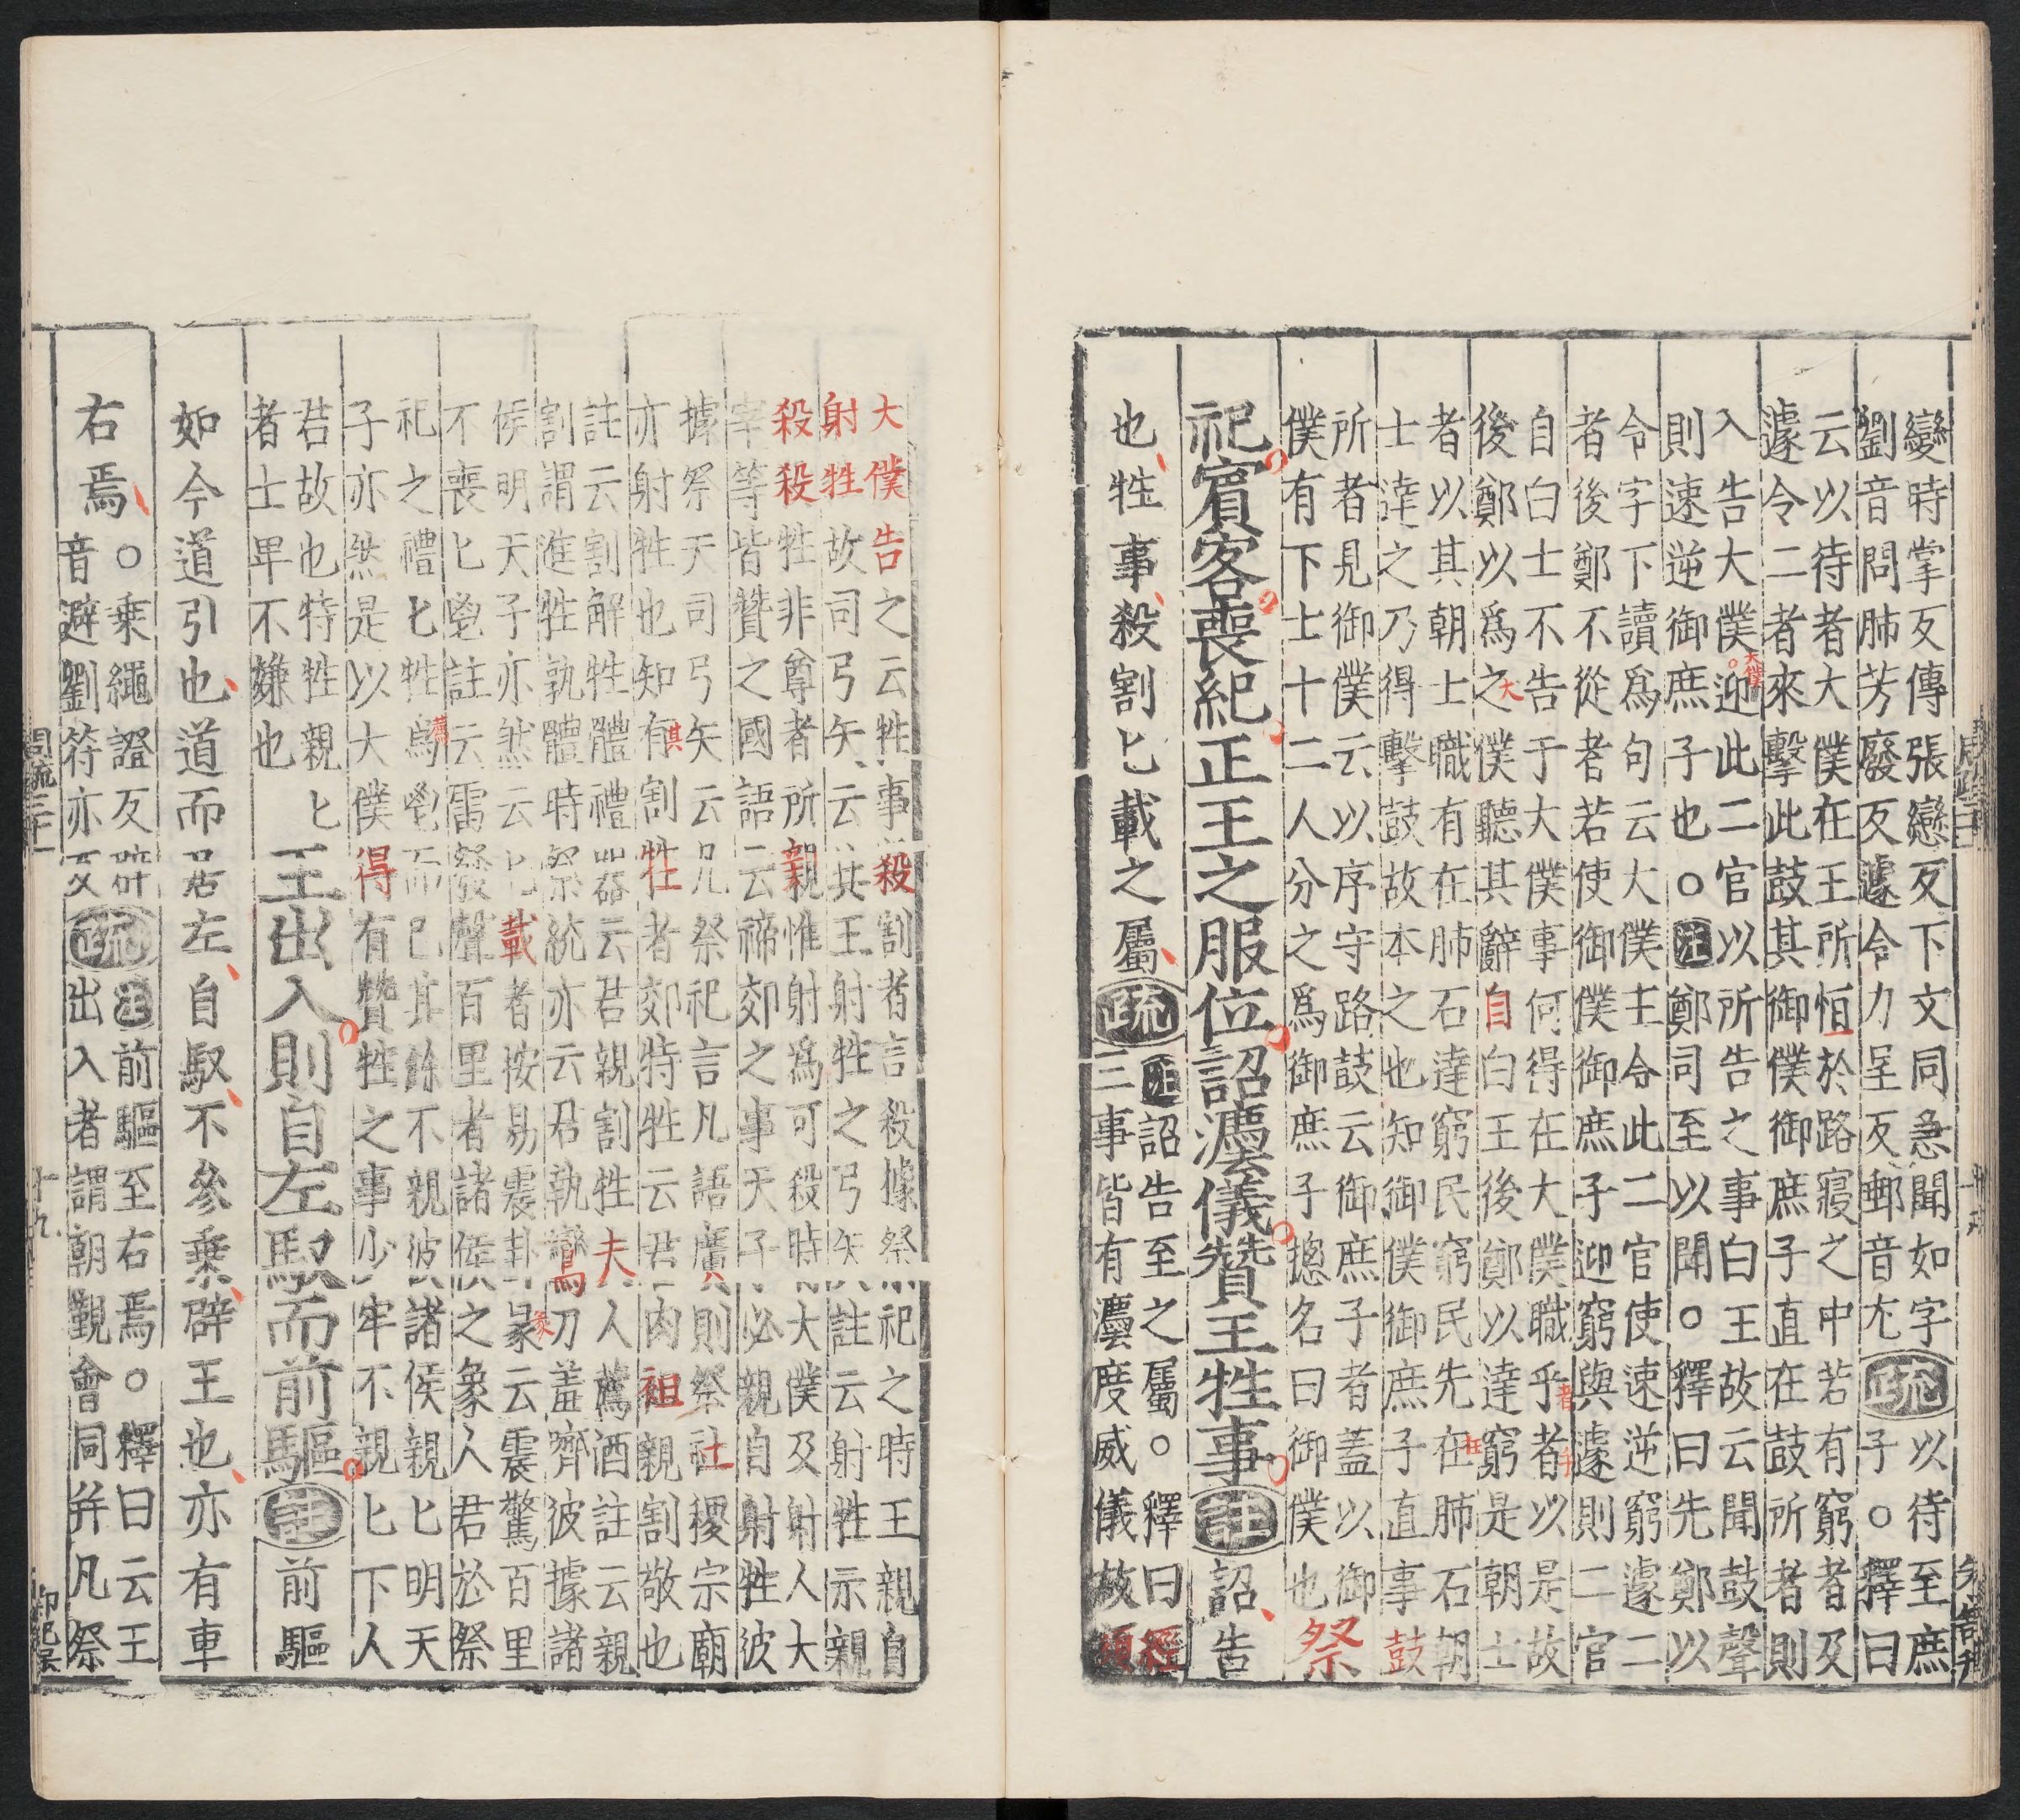 變時掌反傳張戀反下文同急聞如字疏以待至庶
劉音問肺芳廢反遽令力呈反郵音尢子○釋曰
云以待者大僕在王所恒於路寢之中若有窮者及
遽令二者來擊此鼓其御僕御庶子直在鼓所者則
入告大僕迎此二官以所告之事白王故云聞鼓聲
大僕
則速逆御庶子也○注鄭司至以聞○釋曰先鄭以
令字下讀爲句云大僕主令此二官使速逆窮遽二
者後鄭不從者若使御僕御庶子迎窮與遽則二官
自白士不告于大僕事何得在大僕職乎者以是故
大
者
手
後鄭以爲之僕聽其辭自白王後鄭以達窮是朝士
者以其朝士職有在肺石達窮民窮民先在肺石朝
在
士達之乃得擊鼓故本之也知御僕御庶子直事鼓
所者見御僕云以序守路鼓云御庶子者蓋以御
僕有下士十二人分之爲御庶子摠名曰御僕也祭
祀賓客喪紀正王之服位詔灋儀贊王牲事註詔告
也牲事殺割匕載之屬疏注詔告至之屬○釋曰經
三事皆有灋度威儀故須
大僕告之云牲事殺割者言殺據祭祀之時王親自
射牲故司弓矢云共王射牲之弓矢註云射牲示親
殺殺牲非尊者所親惟射爲可殺時大僕及射人大
宰等皆贊之國語云禘郊之事天子必親自射牲彼
據祭天司弓矢云凡祭祀言凡語廣則祭社稷宗廟
亦射牲也知有割牲者郊特牲云君肉袒親割敬也
其
註云割解牲體禮器云君親割牲夫人薦酒註云親
割謂進牲孰體時祭統亦云君執鸞刀羞嚌彼據諸
侯明天子亦然云匕載者按易震卦彖云震驚百里
彖
不喪匕鬯註云雷發聲百里者諸侯之象人君於祭
祀之禮匕牲爲鬯而已其餘不親彼諸侯親匕明天
薦
子亦然是以大僕得有贊牲之事少牢不親匕下人
君故也特牲親匕
者士卑不嫌也
王出入則自左馭而前驅註前驅
如今道引也道而居左自馭不參乘辟王也亦有車
右焉○乘繩證反辟
音避劉符亦反疏注前驅至右焉○釋曰云王
出入者謂朝覲會同并凡祭